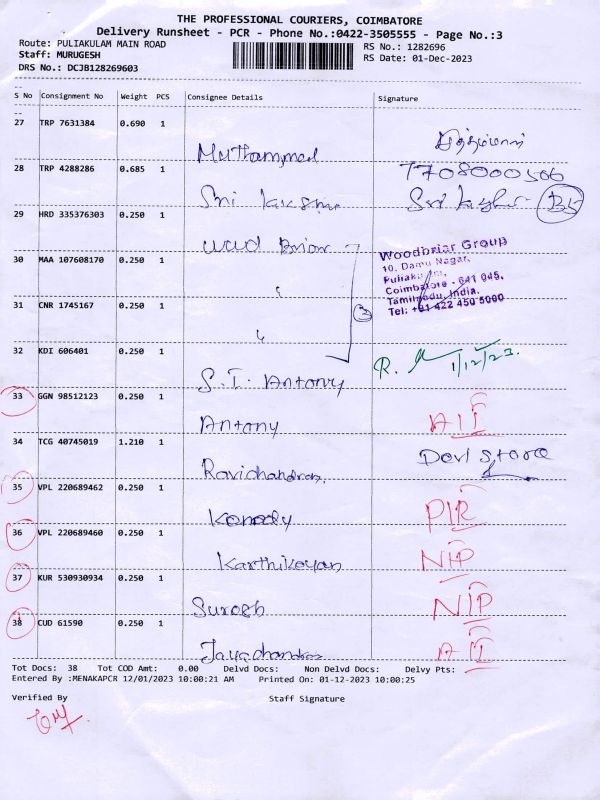 THE PROFESSIONAL COURIERS, COIMBATORE
Delivery Runsheet - PCR - Phone No.:0422-3505555 - Page No.:3
Route: PULIAKULAM MAIN ROAD RS No.: 1282696
Staff: MURUGESH RS Date: 01-Dec-2023
DRS No.: DCJB128269603
S No Consignment No Weight PCS Consignee Details Signature
27 TRP 7631384 0.690 1
Muthammal
28 TRP 4288286 0.685 1 7708000506
Sri Lakshmi
29 HRD 335376303 0.250 1
Wud Briar
30 MAA 107608170 0.250 1 Woodbriar Group
10, Damu Nagar,
Puliakulam,
Coimbatore - 641 045,
31 CNR 1745167 0.250 1 Tamilnadu, India.
Tel: +91 422 450 5000
3
32 KDI 606401 0.250 1 R. 1/12/23.
S.I. Antony
33 GGN 98512123 0.250 1
Antony
34 TCG 40745019 1.210 1 Devi Store
Ravichandran
35 VPL 220689462 0.250 1
Kenedy PIR
36 VPL 220689460 0.250 1
Karthikeyan NIP
37 KUR 530930934 0.250 1
Suresh NIP
38 CUD 61590 0.250 1
Jayachandran
Tot Docs: 38 Tot COD Amt: 0.00 Delvd Docs: Non Delvd Docs: Delvy Pts:
Entered By :MENAKAPCR 12/01/2023 10:00:21 AM Printed On: 01-12-2023 10:00:25
Verified By Staff Signature